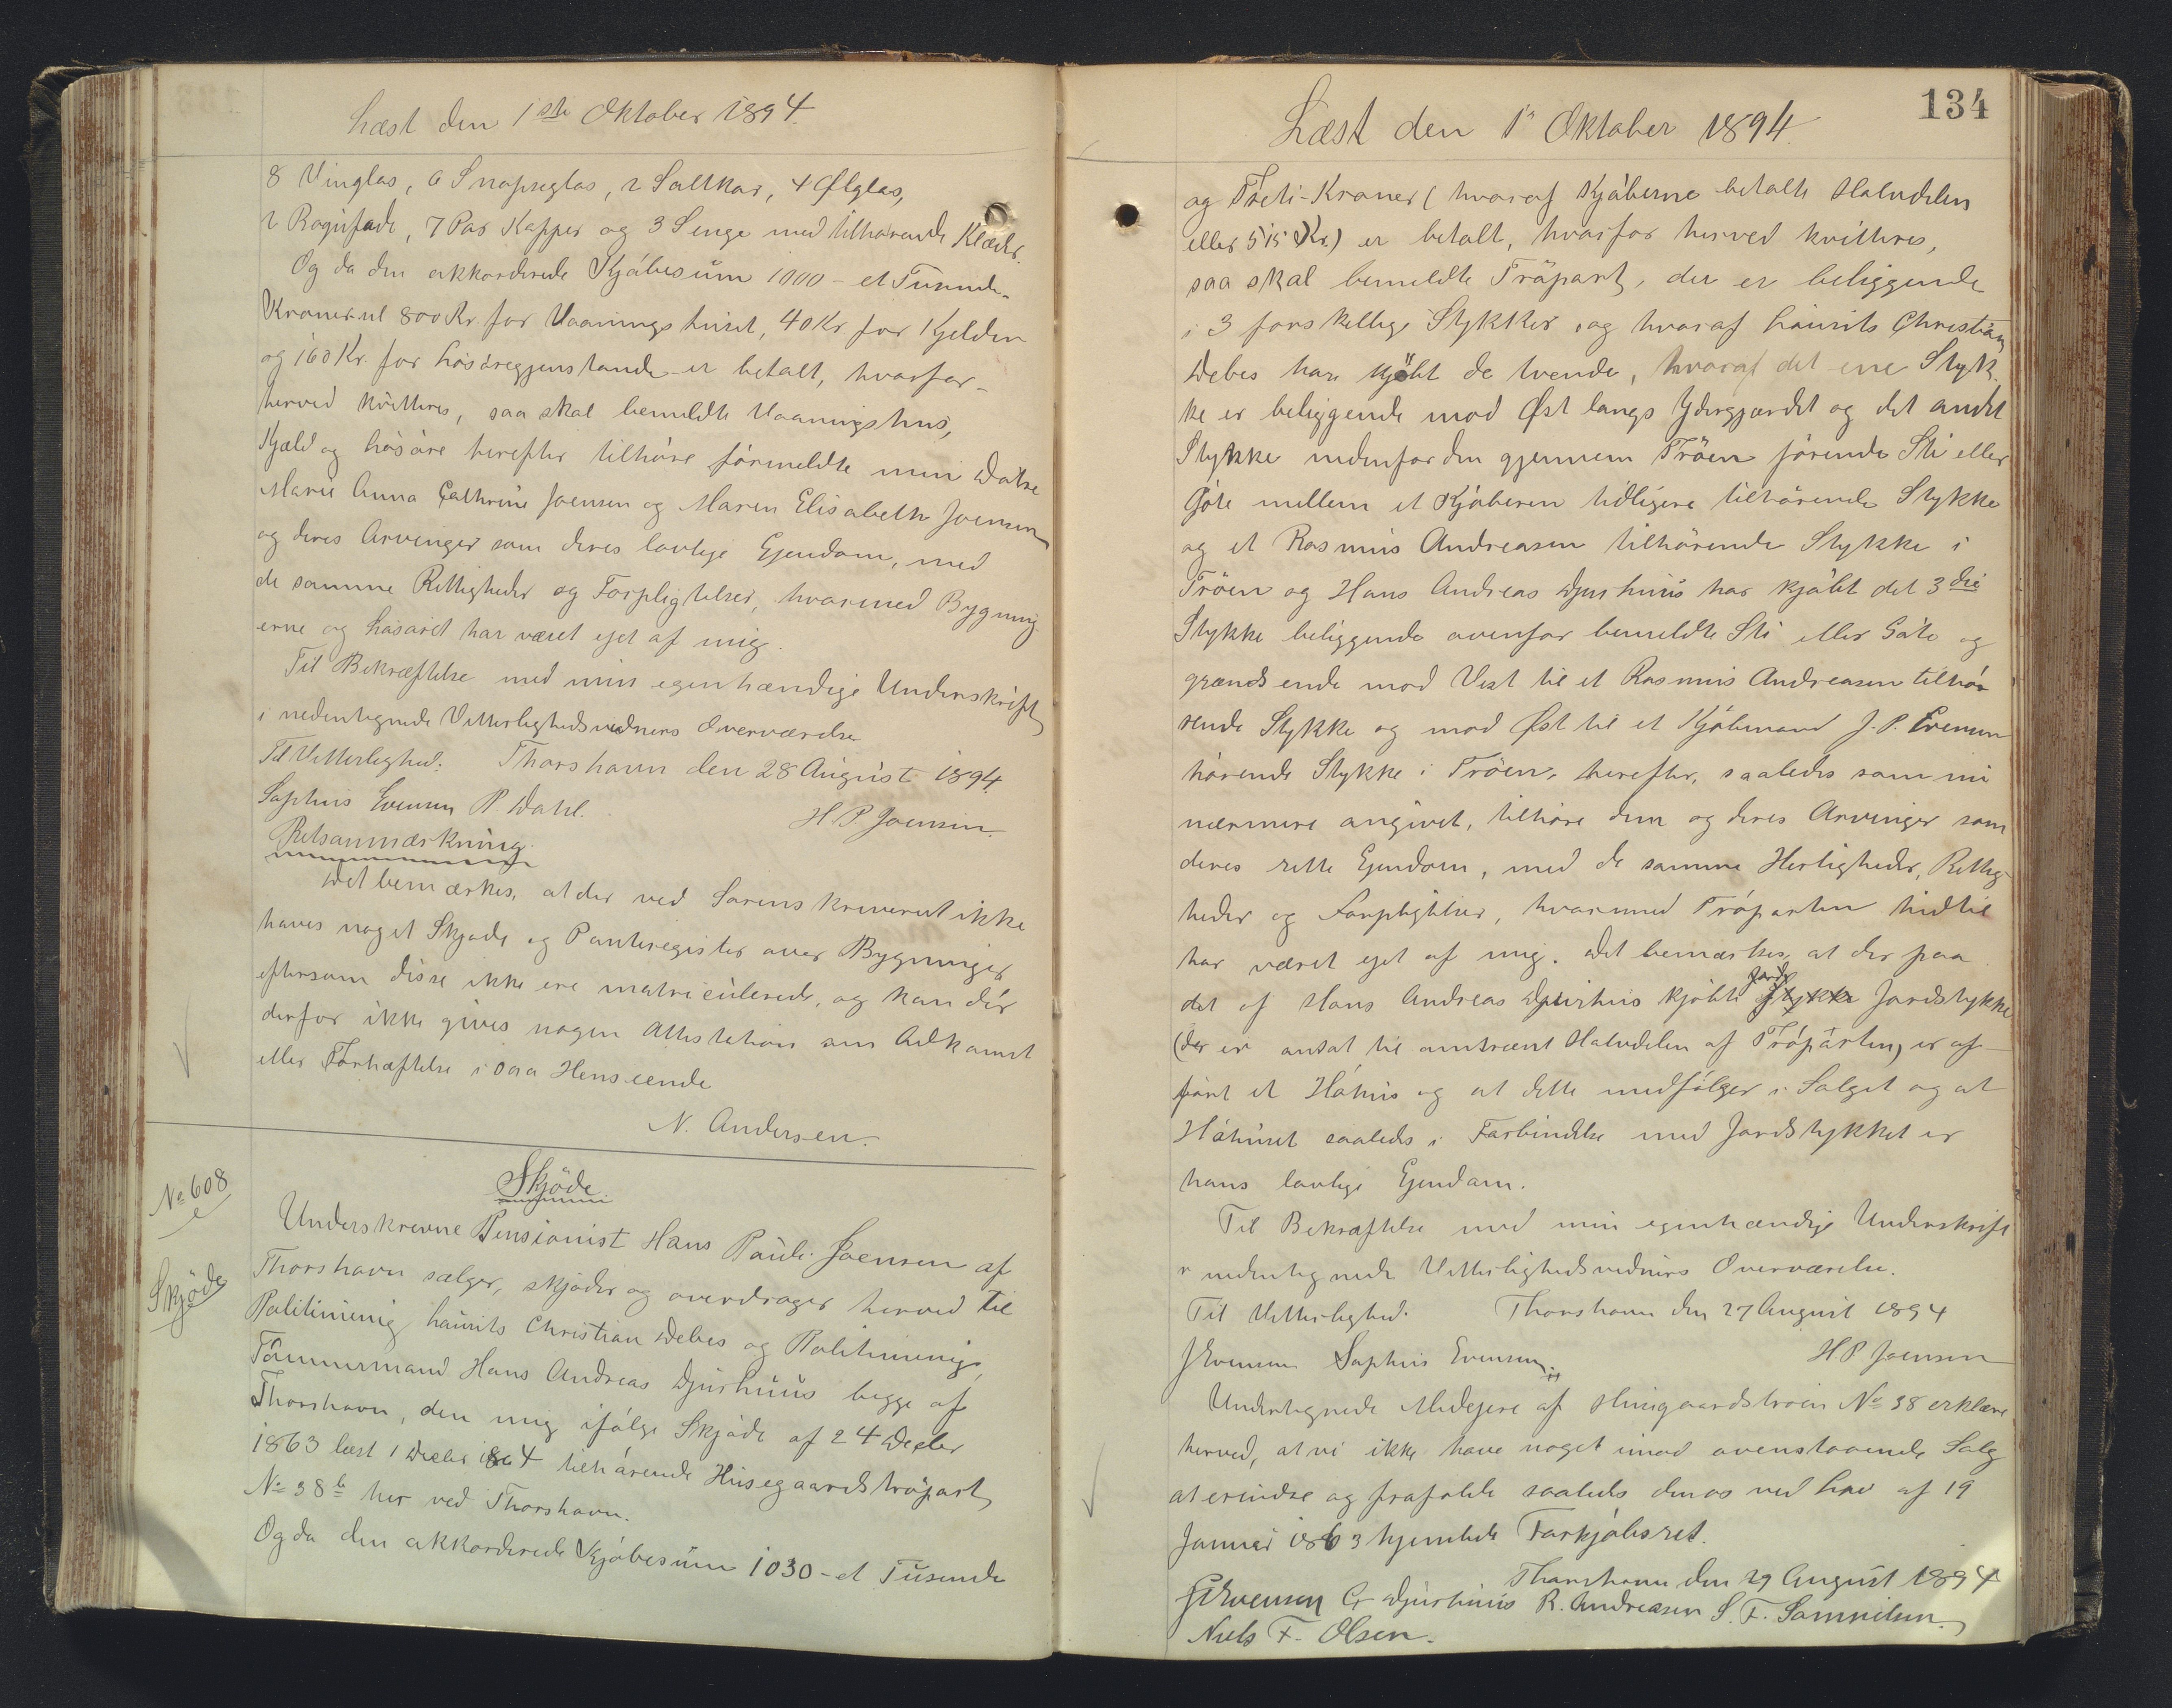 Læst den 1ste Oktober 1894.
8 Vinglas, 6 Snapseglas, 2 Saltkar, 4 Ølglas,
2 Ragufade, 7 Par Kopper og 3 Senge med tilhørende Klæder.
Og da den akkorderede Kjøbesum 1000 - et Tusinde-
Kroner vl 800 Kr. for Vaaningshuset, 40 Kr for Kjelden
og 160 Kr. for Løsøregjenstande - er betalt, hvorfor-
herved kvitteres, saa skal bemeldte Vaaningshus,
Kjæld og løsøre herefter tilhøre formeldte min Døtre
Marie Anna Cathrine Joensen og Maren Elisabeth Joensen
og deres Arvinger som deres lovlige Ejendom, med
de samme Rettigheder og Forpligtelser, hvormed Bygning-
erne og løsøret har været ejet af mig.
Til Bekræftelse med min egenhændige Underskrift
i nedentegnede Vitterlighedsvidners Overværelse
Til Vitterlighed: Thorshavn den 28 August 1894.
Sophus Evensen P Dahl. H. P. Joensen.
Retsanmærkning.
Det bemærkes, at der ved Sorenskriveriet ikke
haves noget Skjøde og Panteregister over Bygninger
eftersom disse ikke ere matriculerede, og kan der
derfor ikke gives nogen Attestation om Adkomst
eller Forhæftelse i saa Henseende
N. Andersen.
No 608
Skjøde.
Skjøde
Underskrevne Pensionist Hans Pauli Joensen af
Thorshavn sælger, skjøder og overdrager herved til
Politimenig Laurits Christian Debes og Politimenig,
Tømmermand Hans Andreas Djurhuus begge af
Thorshavn, den mig ifølge Skjøde af 24 Decbr
1863 læst 1 Decbr 1864 tilhørende Husegaardstrøpart
No 38b her ved Thorshavn.
Og da den akkorderede Kjøbesum 1030 - et Tusinde
134
Læst den 1' Oktober 1894.
og Treti-Kroner (hvoraf Kjøberne betalte Halvdelen
eller 515 Kr.) er betalt, hvorfor herved kvitteres,
saa skal bemeldte Trøpart, der er beliggende
i 3 forskellige Stykker, og hvoraf Laurits Christian
Debes har kjøbt de tvende, hvoraf det ene Styk-
ke er beliggende mod Øst langs Ydergjærdet og det andet
Stykke nedenfor den gjennem Trøen førende Sti eller
Gøte mellem et Kjøberen tidligere tilhørende Stykke
og et Rasmus Andreasen tilhørende Stykke i
Trøen og Hans Andreas Djurhuus har kjøbt det 3die
Stykke beliggende ovenfor bemeldte Sti eller Gøte og
grændsende mod Vest til et Rasmus Andreasen tilhø-
rende Stykke og mod Øst til et Kjøbmand J. P. Evensen
hørende Stykke i Trøen, herefter, saaledes som nu
nærmere angivet, tilhøre dem og deres Arvinger som
deres rette Ejendom, med de samme Herligheder, Rettig-
heder og Forpligtelser, hvormed Trøparten hidtil
har været ejet af mig. Det bemærkes, at der paa
det af Hans Andreas Djurhuus kjøbte Stykke Jordstykke
(der er ansat til omtrent Halvdelen af Trøparten) er op-
ført et Høhus og at dette medfølger i Salget og at
Høhuset saaledes i Forbindelse med Jordstykket er
hans lovlige Ejendom.
Til Bekræftelse med min egenhændige Underskrift
i nedentegnede Vitterlighedsvidners Overværelse.
Til Vitterlighed. Thorshavn den 27 August 1894
J Evensen Sophus Evensen. H P Joensen
Undertegnede Medejere af Husegaardstrøen No 38 erklære
herved, at vi ikke have noget imod ovenstaaende Salg
at erindre og frafalde saaledes den os ved Lov af 19
Januar 1863 hjemlede Forkjøbsret.
Thorshavn den 29 August 1894
J Evensen Cr Djurhuus R. Andreasen S. F. Samuelsen.
Niels F. Olsen.